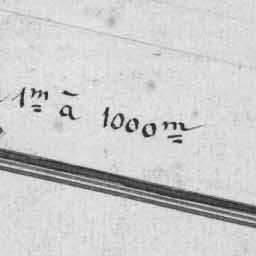 1m à 1000m